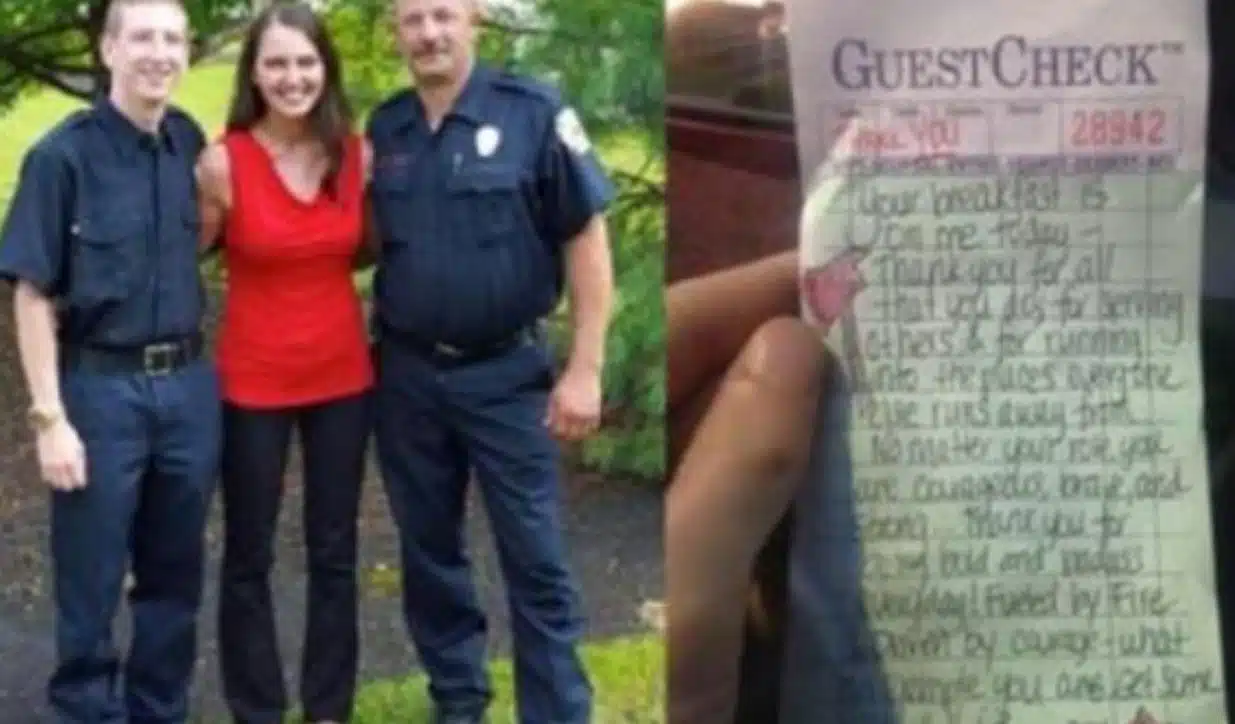 GUESTCHECK™
YOU
28942
Your breakfast is
on me today -
Thank you for all
that you do; for serving
others & for running
into the places everyone
else runs away from.
No matter your role, you
are courageous, brave, and
strong. Thank you for
being bold and badass
everyday! Fueled by Fire
Driven by courage - what
example you are. Get some